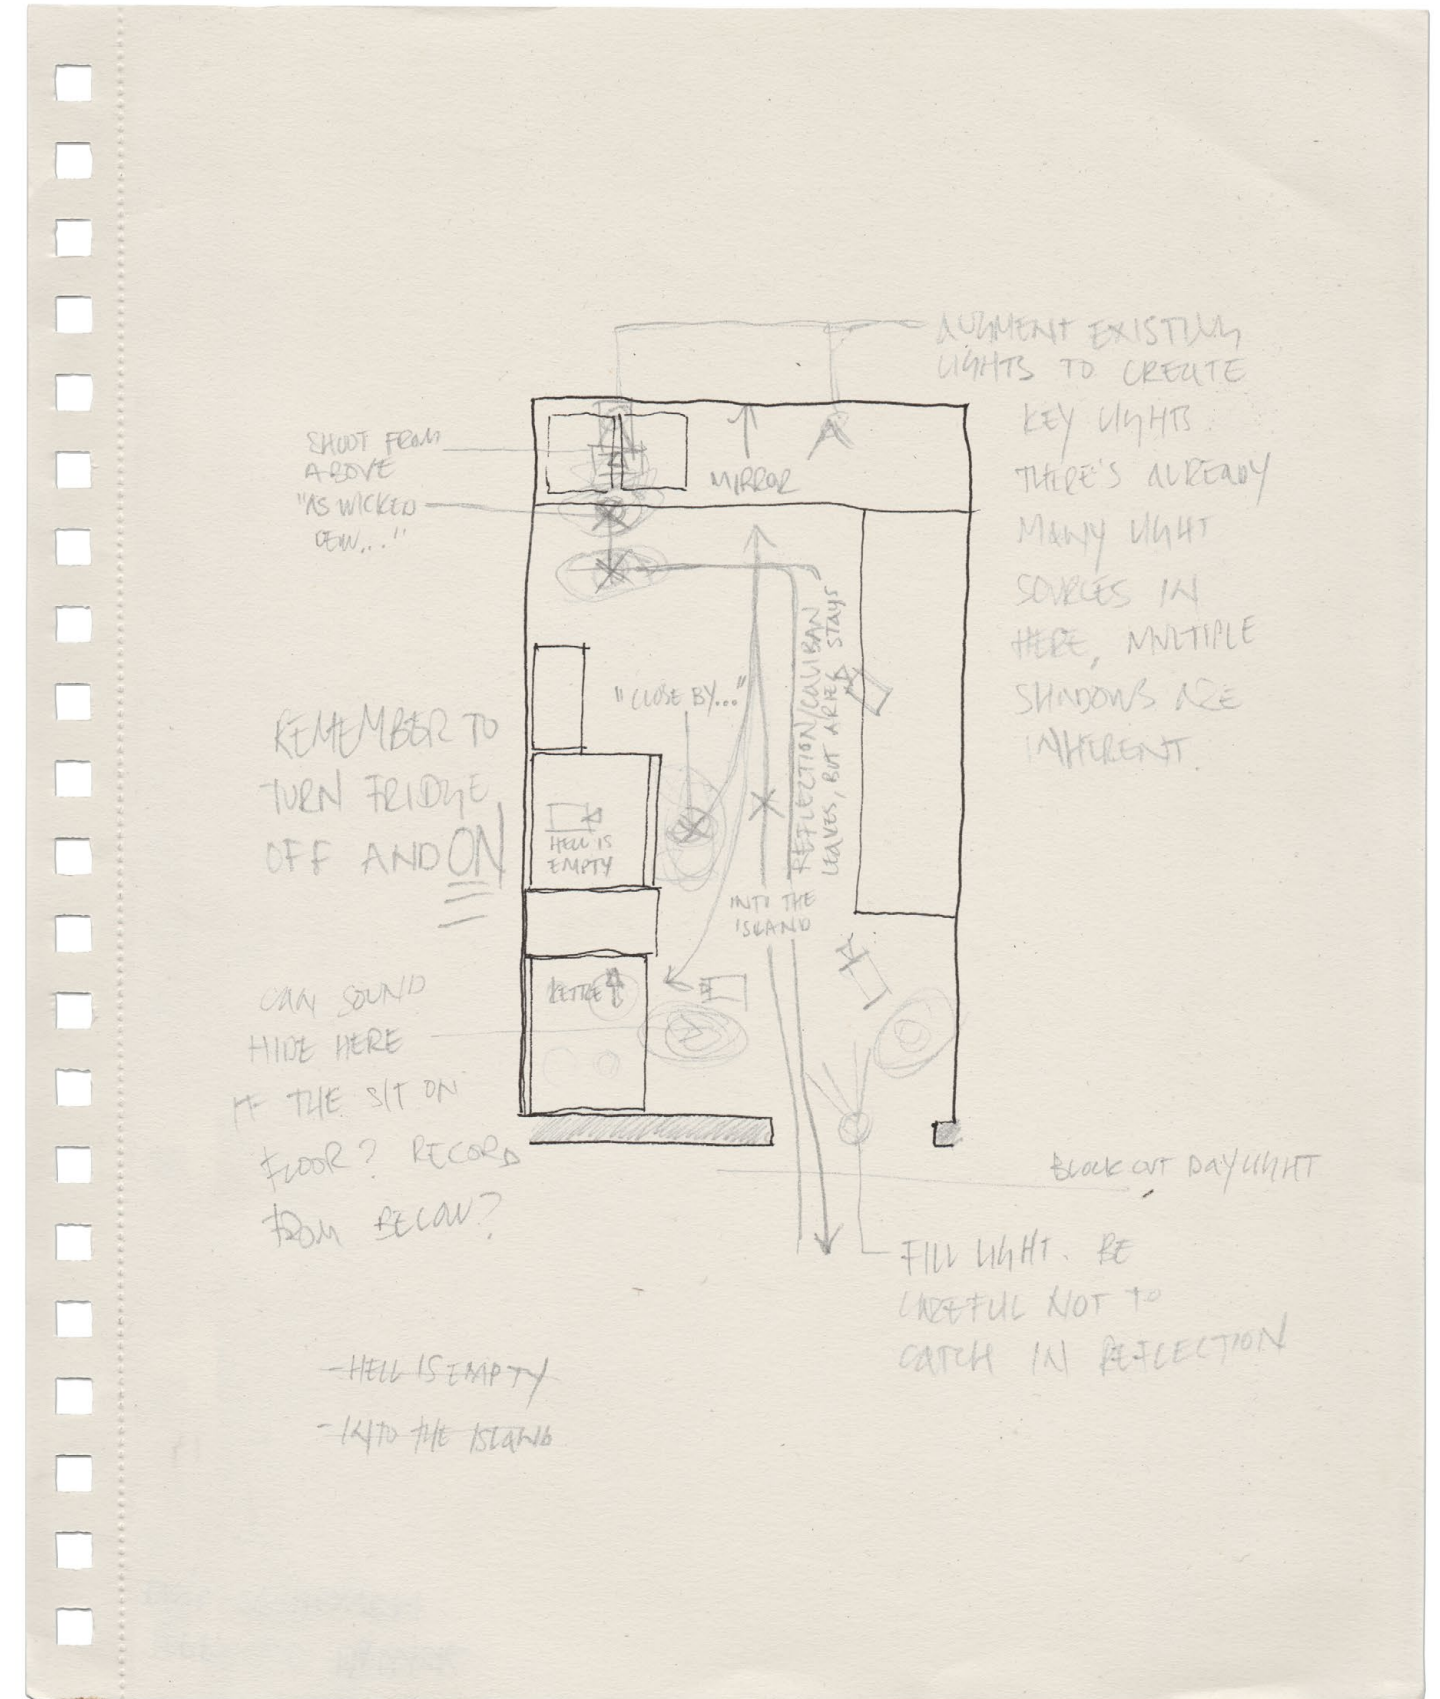 AUGMENT EXISTING
LIGHTS TO CREATE
KEY LIGHTS.
THERE'S ALREADY
MANY LIGHT
SOURCES IN
HERE, MULTIPLE
SHADOWS ARE
INHERENT.
SHOOT FROM
ABOVE
"AS WICKED
DEW..."
MIRROR
"CLOSE BY..."
REFLECTION/CALIBAN
LEAVES, BUT ARIEL STAYS
REMEMBER TO
TURN FRIDGE
OFF AND ON
HELL IS
EMPTY
INTO THE
ISLAND
KETTLE
CAN SOUND
HIDE HERE
IF THE SIT ON
FLOOR? RECORD
FROM BELOW?
BLOCK OUT DAYLIGHT
FILL LIGHT. BE
CAREFUL NOT TO
CATCH IN REFLECTION
- HELL IS EMPTY
- INTO THE ISLAND